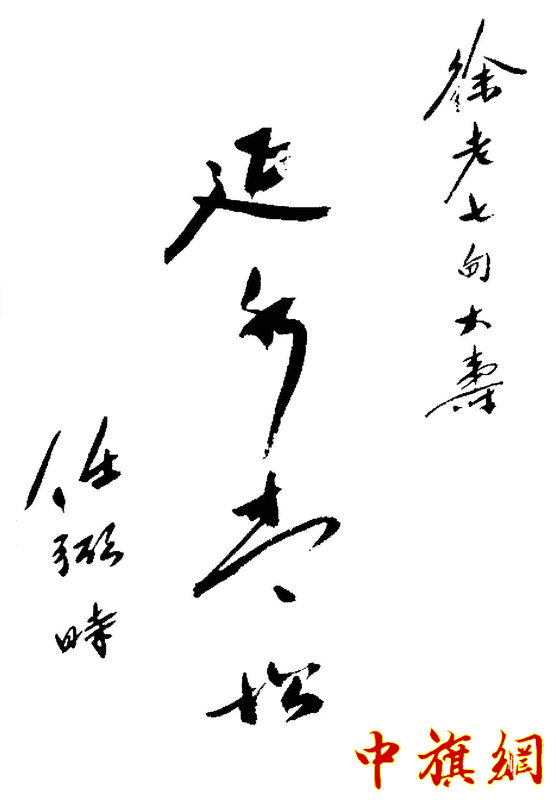 徐老七旬大壽
延水松
任弼時
中旗網